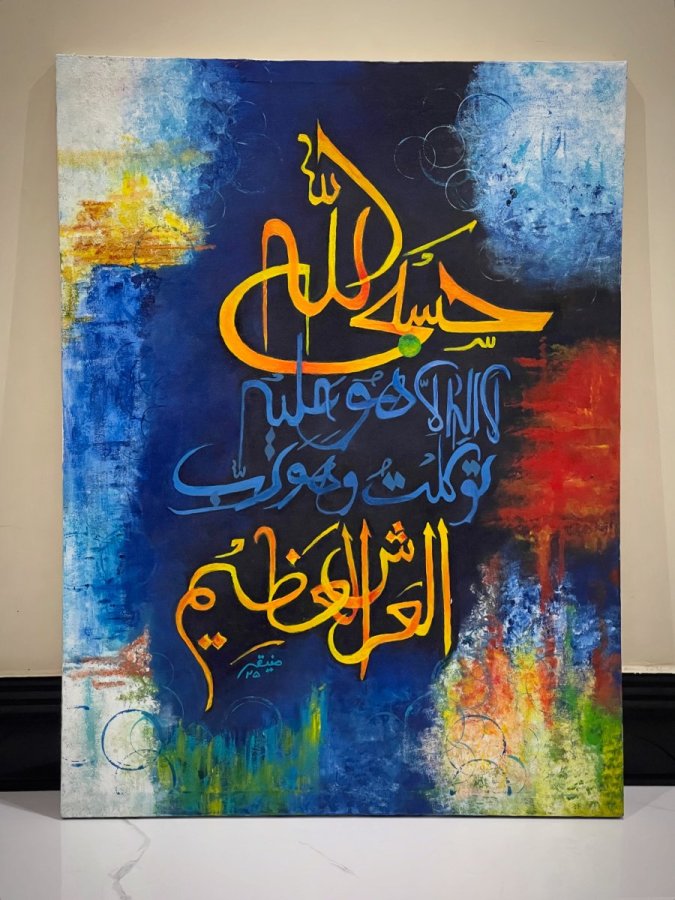 حسبي الله
لا اله الا هو عليه
توكلت وهو رب
العرش العظيم
٢٥